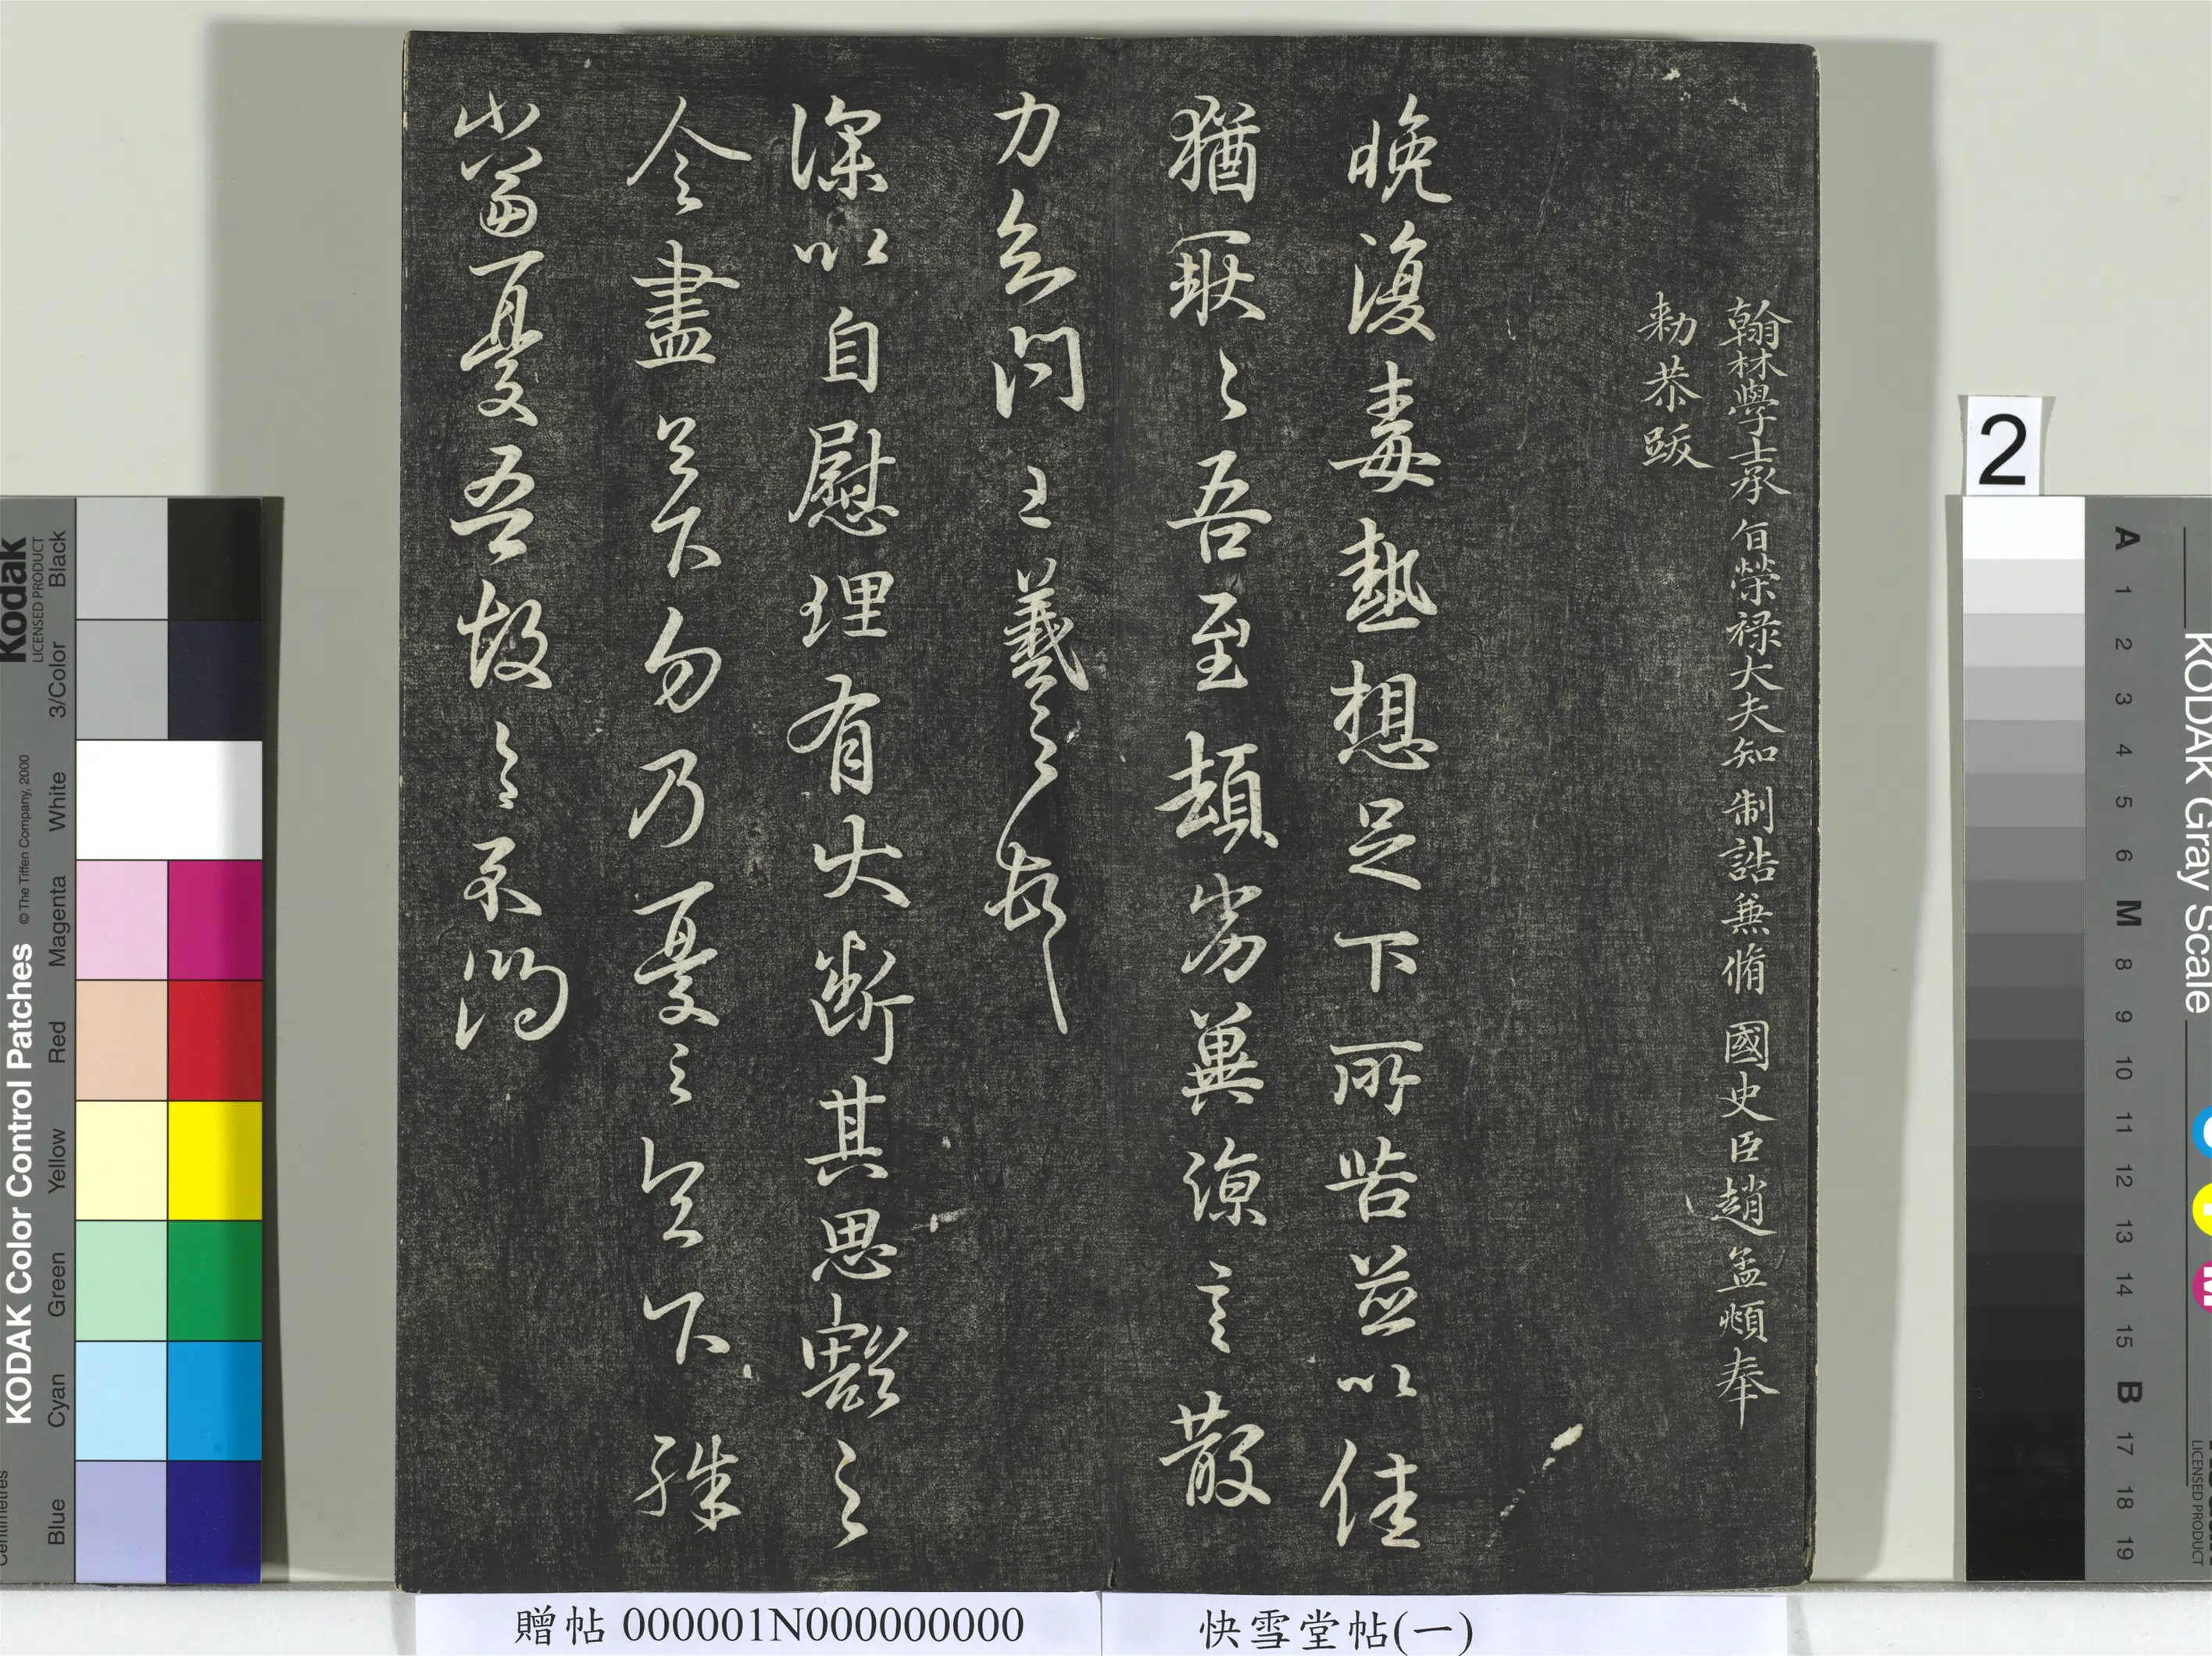 翰林學士承旨榮祿大夫知制誥兼脩國史臣趙孟頫奉
勅恭跋
晚復毒熱想足下所苦並以佳
猶耿〻吾至頓劣冀涼言散
力知問王羲之頓首
深以自慰理有大斷其思豁之
令盡足下勿乃憂之足下殊
當憂吾故
快雪堂帖(一)
贈帖 000001N000000000
2
KODAK Color Control Patches
Kodak
LICENSED PRODUCT
© The Tiffen Company, 2000
Blue Cyan Green Yellow Red Magenta White 3/Color Black
KODAK Gray Scale
A 1 2 3 4 5 6 M 8 9 10 11 12 13 14 15 B 17 18 19
LICENSED PRODUCT